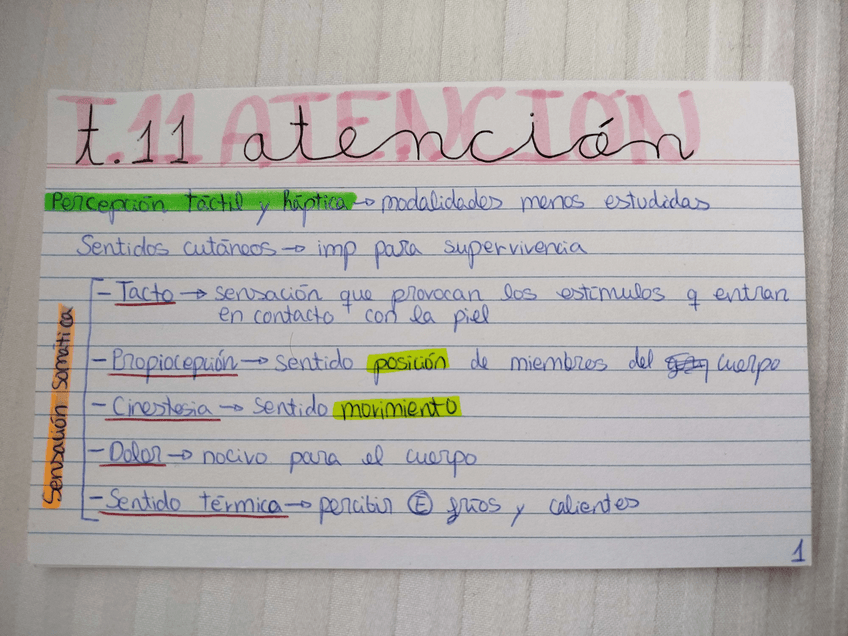 T.11 ATENCIÓN
t.11 atención
Percepción táctil y háptica → modalidades menos estudidas
Sentidos cutáneos → imp para supervivencia
Sensación somática
- Tacto → sensación que provocan los estímulos q entran
en contacto con la piel
- Propiocepción → sentido posición de miembros del cuerpo
- Cinestesia → sentido movimiento
- Dolor → nocivo para el cuerpo
- Sentido térmica → percibir Ⓔ fríos y calientes
1